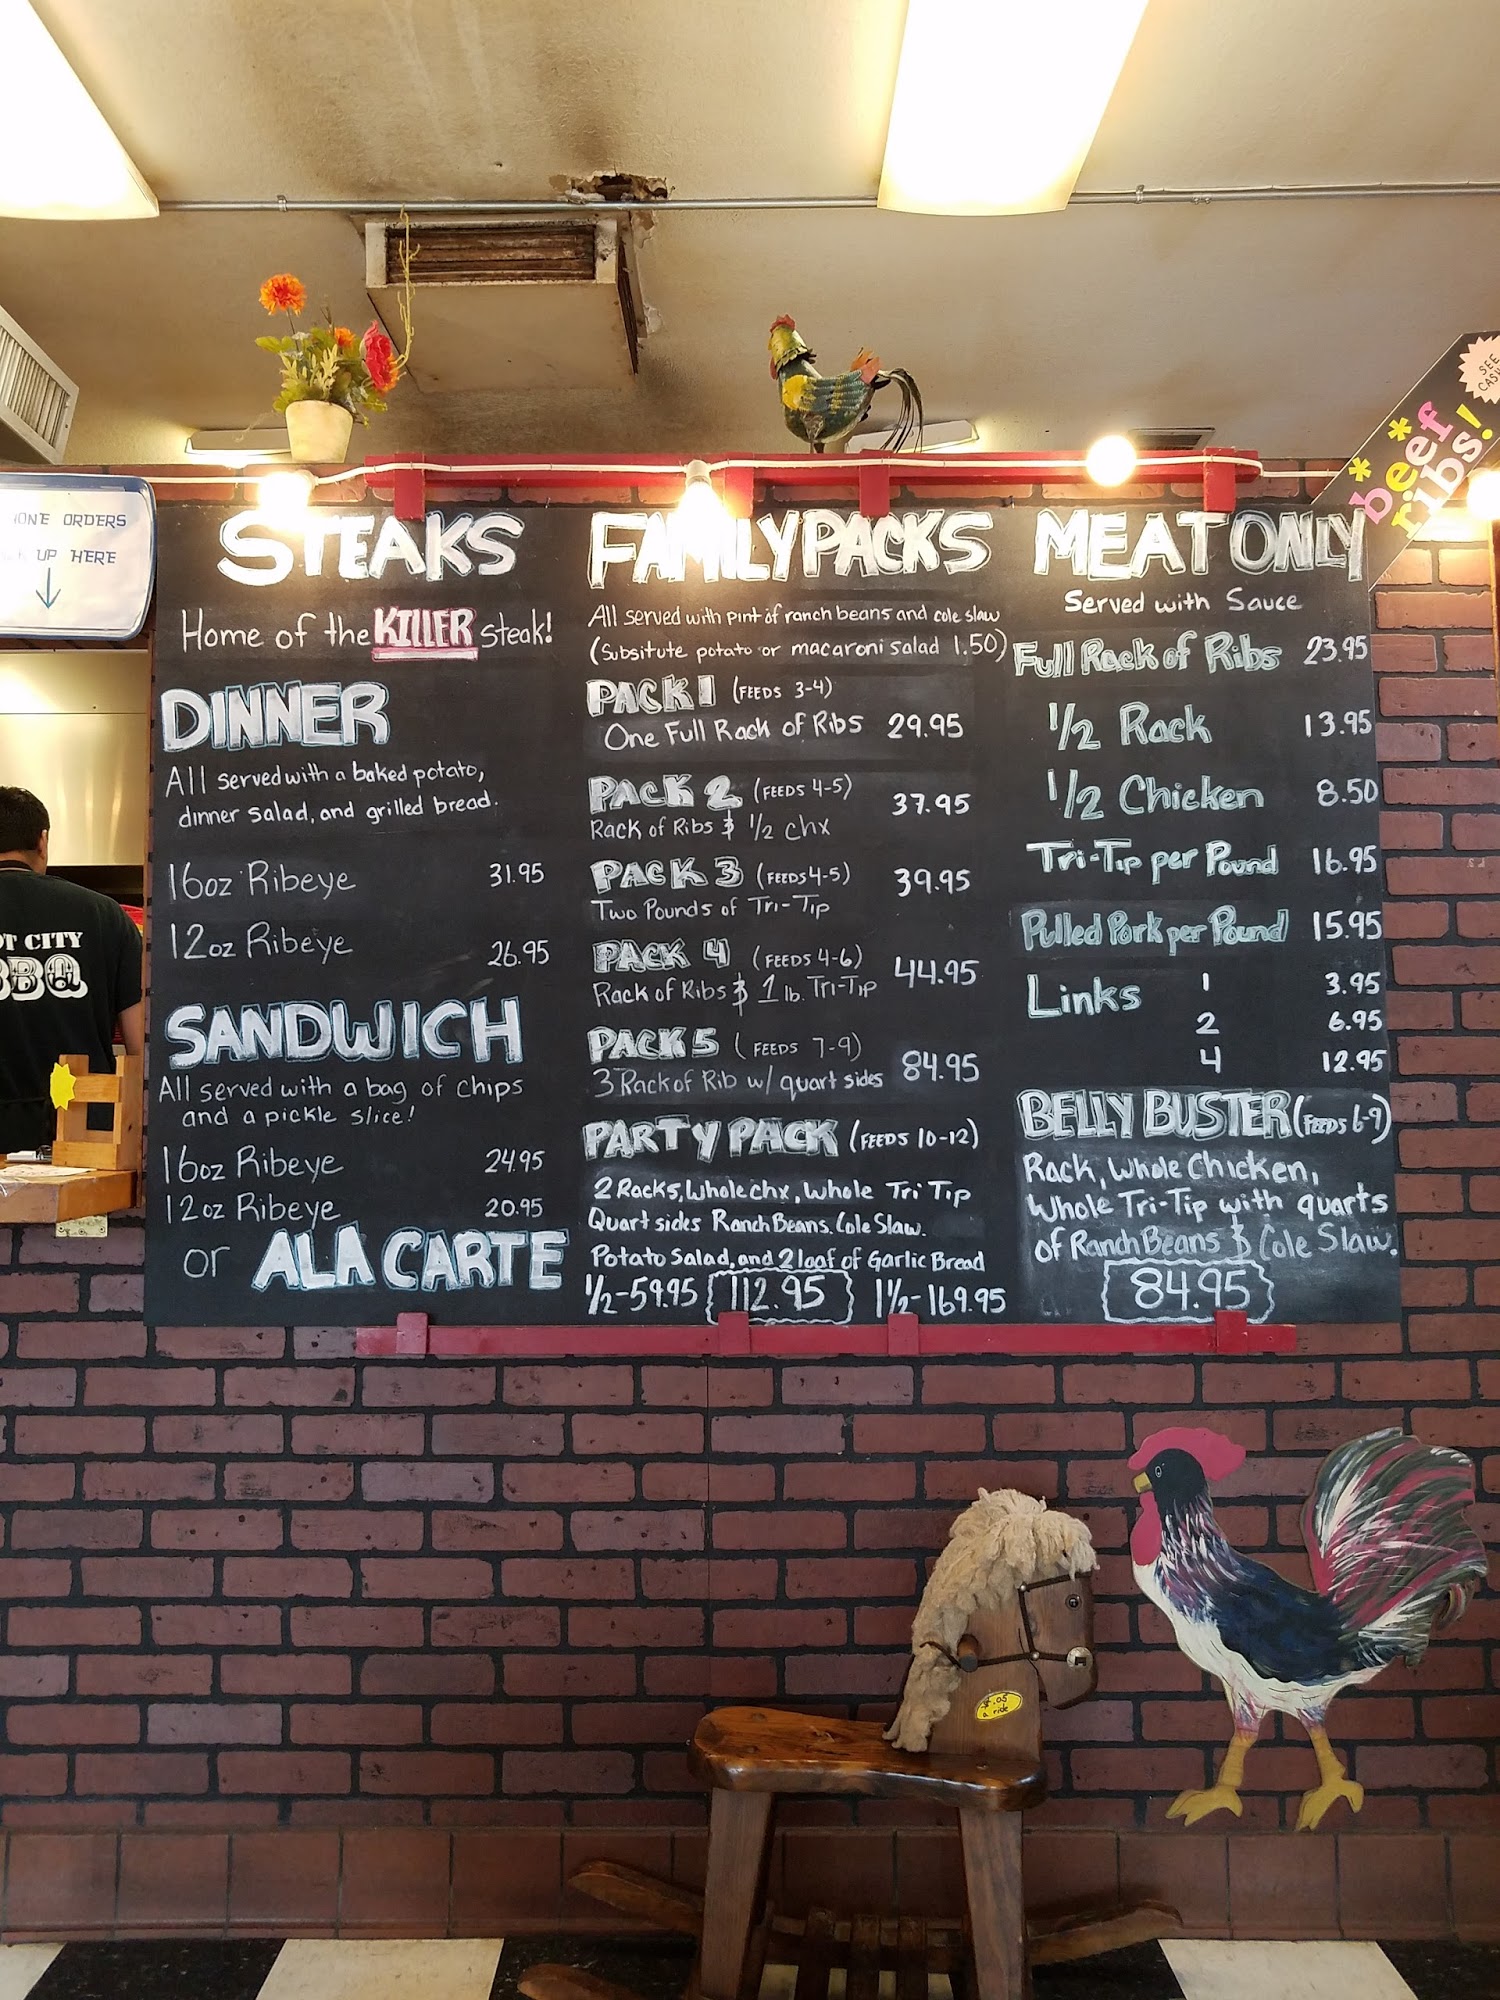 ORDERS
UP HERE
CITY
BBQ
STEAKS
Home of the KILLER steak!
DINNER
All served with a baked potato,
dinner salad, and grilled bread.
16oz Ribeye 31.95
12oz Ribeye 26.95
SANDWICH
All served with a bag of chips
and a pickle slice!
16oz Ribeye 24.95
12oz Ribeye 20.95
or ALA CARTE
FAMILY PACKS
All served with pint of ranch beans and cole slaw
(Subsitute potato or macaroni salad 1.50)
PACK 1 (FEEDS 3-4)
One Full Rack of Ribs 29.95
PACK 2 (FEEDS 4-5) 37.95
Rack of Ribs & 1/2 chx
PACK 3 (FEEDS 4-5) 39.95
Two Pounds of Tri-Tip
PACK 4 (FEEDS 4-6) 44.95
Rack of Ribs & 1 lb. Tri-Tip
PACK 5 (FEEDS 7-9) 84.95
3 Rack of Rib w/ quart sides
PARTY PACK (FEEDS 10-12)
2 Racks, Whole chx, Whole Tri Tip
Quart sides Ranch Beans. Cole Slaw.
Potato Salad, and 2 loaf of Garlic Bread
1/2-59.95 112.95 1 1/2-169.95
MEAT ONLY
Served with Sauce
Full Rack of Ribs 23.95
1/2 Rack 13.95
1/2 Chicken 8.50
Tri-Tip per Pound 16.95
Pulled Pork per Pound 15.95
Links 1 3.95
2 6.95
4 12.95
BELLY BUSTER (FEEDS 6-9)
Rack, Whole Chicken,
Whole Tri-Tip with quarts
of Ranch Beans & Cole Slaw.
84.95
SEE
*beef*
ribs!
$.05
a ride